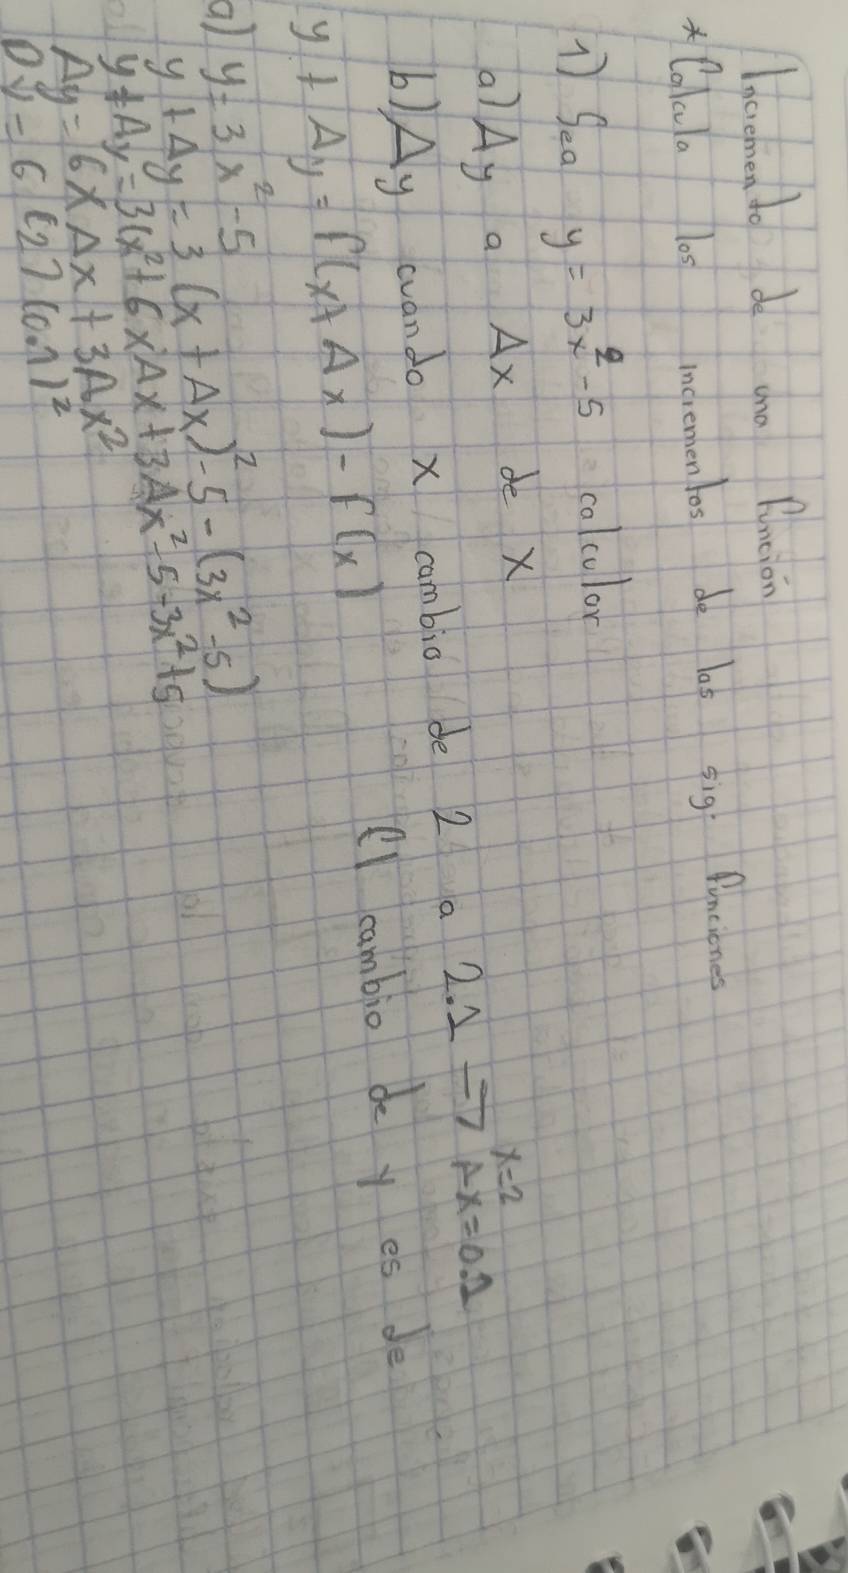 Incremento de una función
* Calcula los incrementos de las sig. funciones
1) Sea y = 3x² - 5 calcular
a) Ay a Ax de x
b) Ay cuando x cambio de 2 a 2.1 → x=2 Ax=0.1
El cambio de y es de
y + Ay = f(x + Ax) - f(x)
a) y = 3x² - 5
y + Ay = 3(x + Ax)² - 5 - (3x² - 5)
y + Ay = 3(x² + 6xAx + 3Ax² - 5 - 3x² + 5
Ay = 6xAx + 3Ax²
Dy = 6(2)(0.1)²